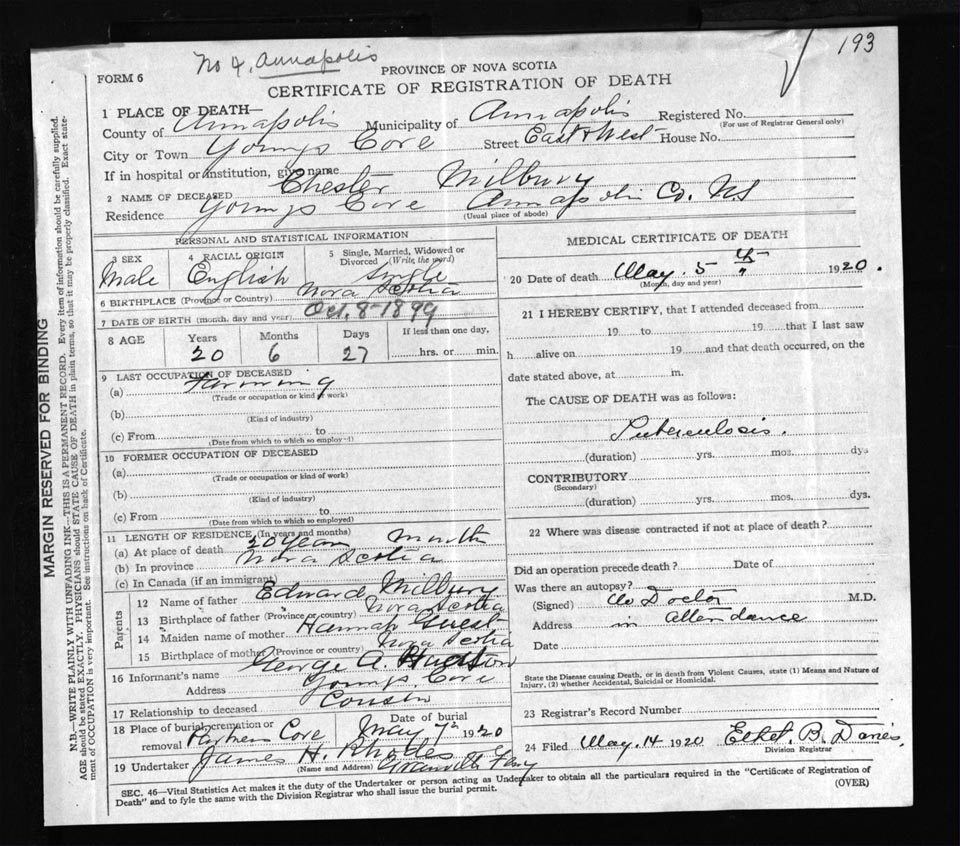 193
No 4, Annapolis
FORM 6
PROVINCE OF NOVA SCOTIA
CERTIFICATE OF REGISTRATION OF DEATH
1 PLACE OF DEATH—
County of Annapolis Municipality of Annapolis Registered No.
(For use of Registrar General only)
City or Town Youngs Cove Street East & West House No.
If in hospital or institution, give name
2 NAME OF DECEASED Chester Milbury
Residence Youngs Cove Annapolis Co. N.S
(Usual place of abode)
PERSONAL AND STATISTICAL INFORMATION
3 SEX 4 RACIAL ORIGIN 5 Single, Married, Widowed or Divorced (Write the word)
Male English Single
6 BIRTHPLACE (Province or Country) Nova Scotia
7 DATE OF BIRTH (month, day and year) Oct, 8-1899
8 AGE Years Months Days If less than one day,
20 6 27 hrs. or min.
9 LAST OCCUPATION OF DECEASED
(a) Farming
(Trade or occupation or kind of work)
(b)
(Kind of industry)
(c) From to
(Date from which to which so employed)
10 FORMER OCCUPATION OF DECEASED
(a)
(Trade or occupation or kind of work)
(b)
(Kind of industry)
(c) From to
(Date from which to which so employed)
11 LENGTH OF RESIDENCE (In years and months)
(a) At place of death 20 years months
(b) In province Nova Scotia
(c) In Canada (if an immigrant)
Parents
12 Name of father Edward Milbury
13 Birthplace of father (Province or country) Nova Scotia
14 Maiden name of mother Hannah Guest
15 Birthplace of mother (Province or country) Nova Scotia
16 Informant's name George A. Hudson
Address Youngs Cove
17 Relationship to deceased Cousin
18 Place of burial, cremation or removal Parkers Cove Date of burial May 7th 1920
19 Undertaker James H. Rhodes Granville Ferry
(Name and Address)
MEDICAL CERTIFICATE OF DEATH
20 Date of death May. 5th 1920.
(Month, day and year)
21 I HEREBY CERTIFY, that I attended deceased from
19 to 19 that I last saw
h alive on 19 and that death occurred, on the
date stated above, at m.
The CAUSE OF DEATH was as follows:
Tuberculosis.
(duration) yrs. mos. dys
CONTRIBUTORY
(Secondary)
(duration) yrs. mos. dys.
22 Where was disease contracted if not at place of death?
Did an operation precede death? Date of
Was there an autopsy?
(Signed) No Doctor M.D.
Address in attendance
Date
State the Disease causing Death, or in death from Violent Causes, state (1) Means and Nature of
Injury, (2) whether Accidental, Suicidal or Homicidal.
23 Registrar's Record Number
24 Filed May. 14 1920 Ethel. B. Danies,
Division Registrar
SEC. 46—Vital Statistics Act makes it the duty of the Undertaker or person acting as Undertaker to obtain all the particulars required in the "Certificate of Registration of
Death" and to fyle the same with the Division Registrar who shall issue the burial permit. (OVER)
MARGIN RESERVED FOR BINDING
N.B.—WRITE PLAINLY WITH UNFADING INK—THIS IS A PERMANENT RECORD. Every item of information should be carefully supplied.
AGE should be stated EXACTLY. PHYSICIANS should STATE CAUSE OF DEATH in plain terms, so that it may be properly classified. Exact state-
ment of OCCUPATION is very important. See instructions on back of Certificate.